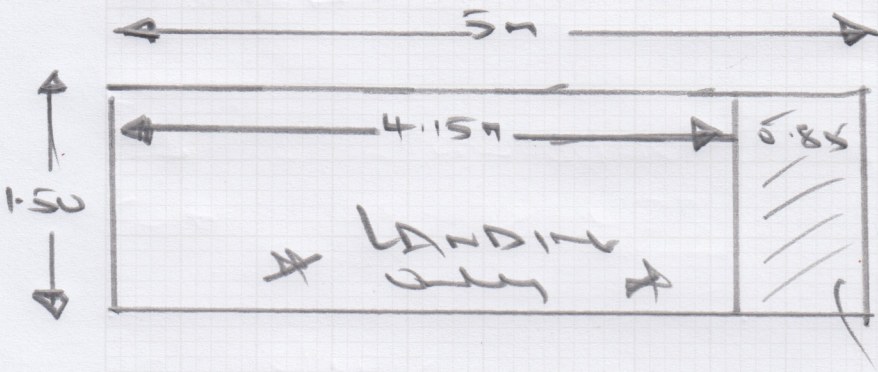 5m
4.15m
0.85
1.50
* LANDING
only *